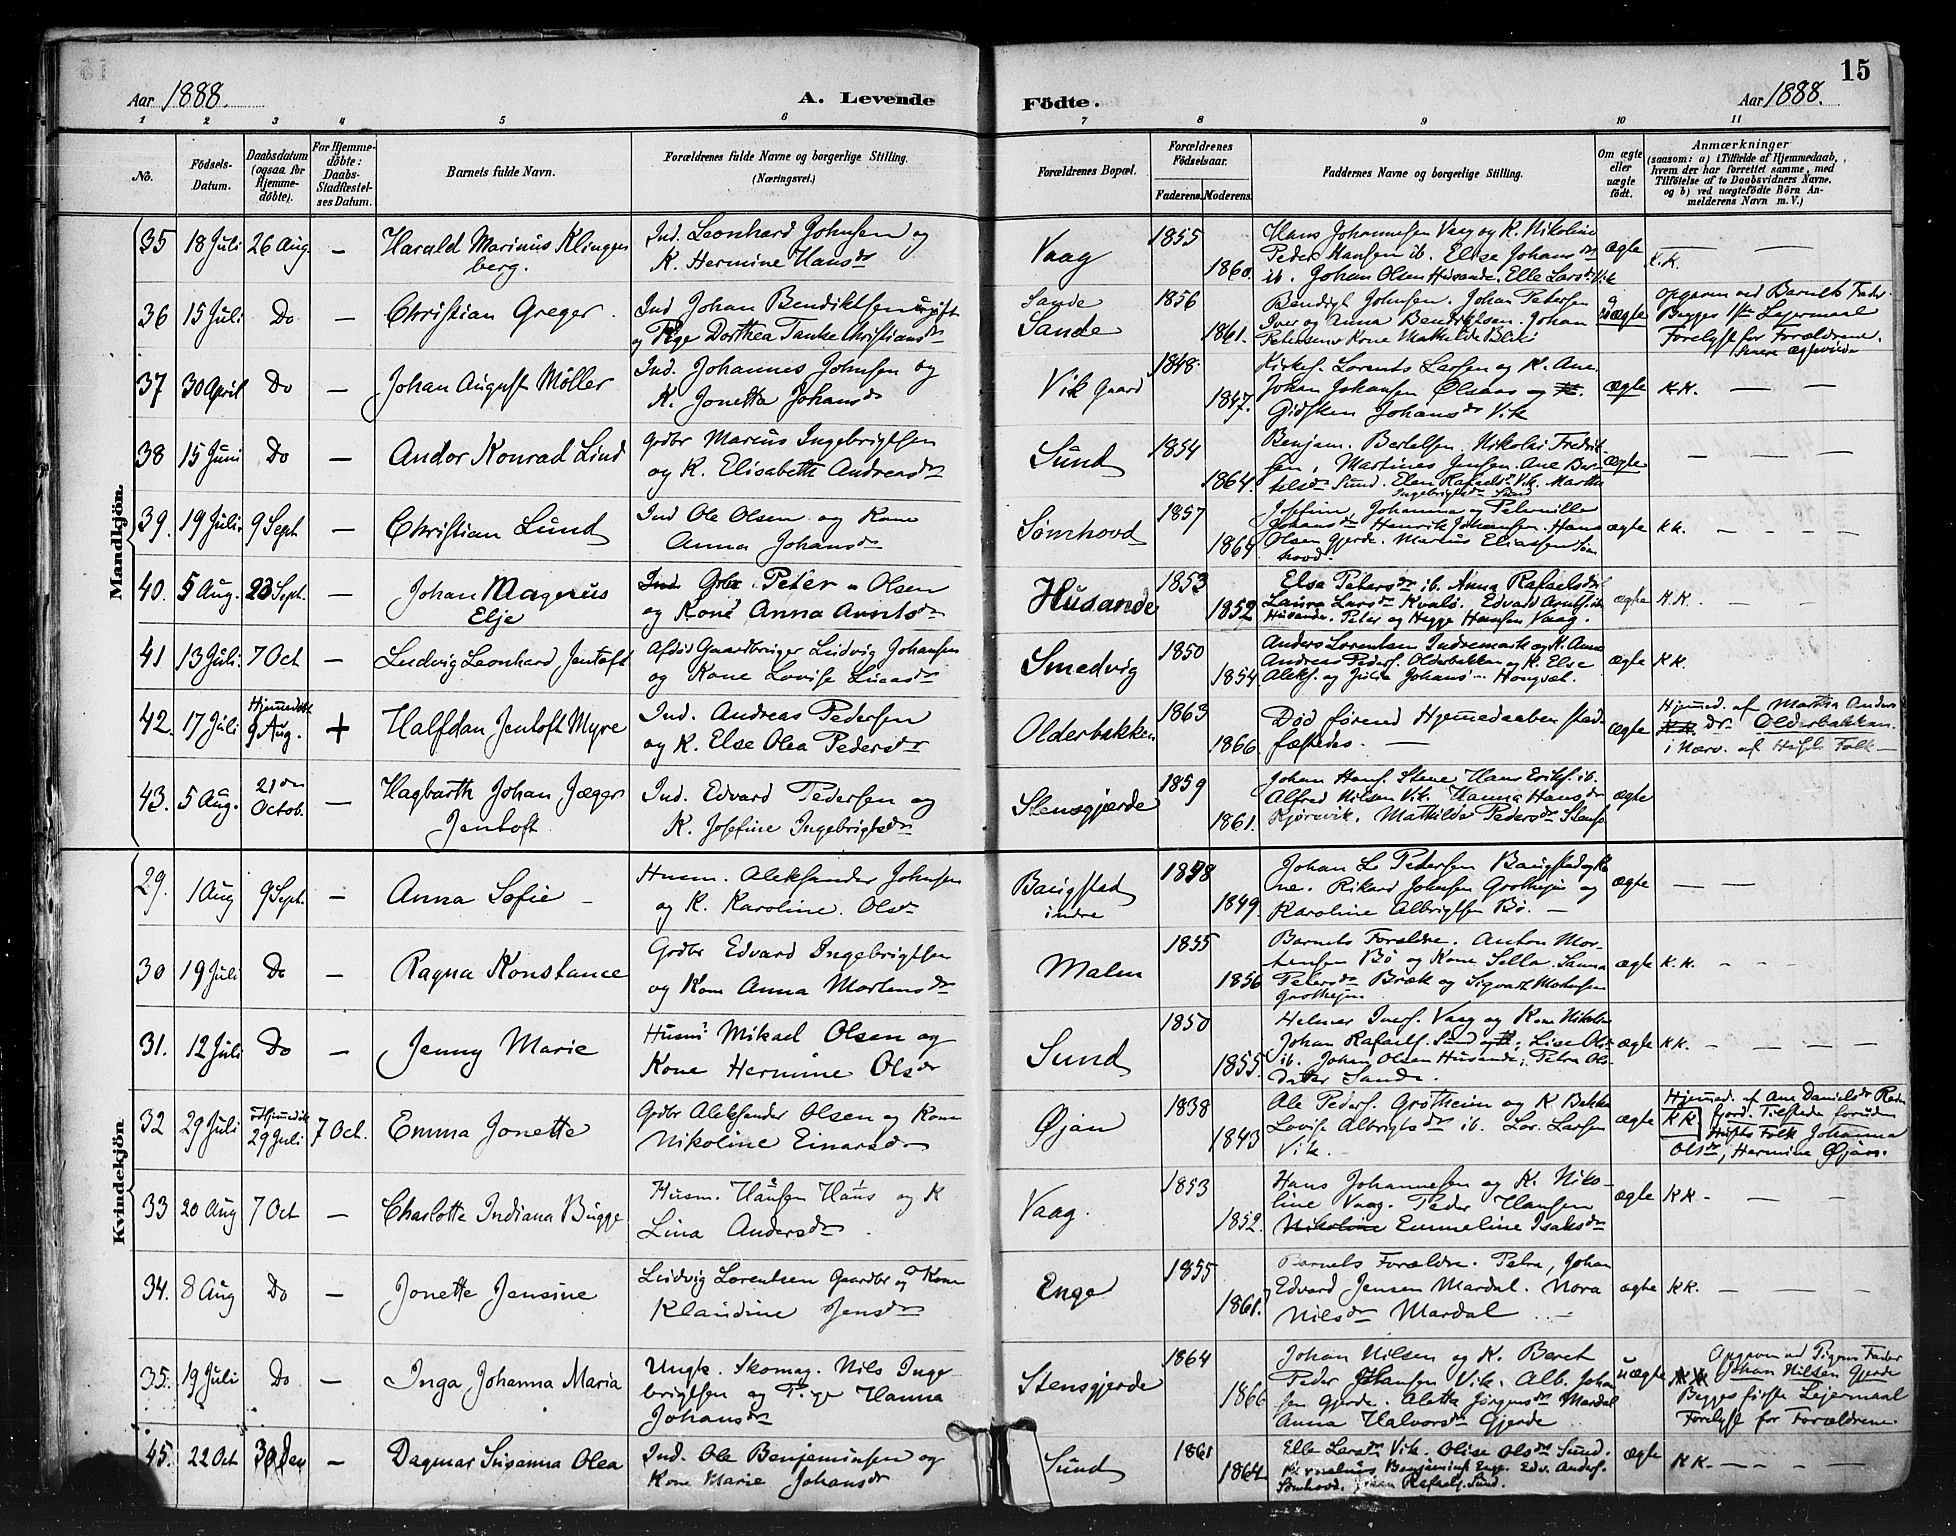 15
Aar 1888.
A. Levende Födte.
Aar 1888.
1 2 3 4 5 6 7 8 9 10 11
No.
Födsels-Datum.
Daabsdatum (ogsaa for Hjemmedöbte).
For Hjemmedöbte: Daabs-Stadfæstelses Datum.
Barnets fulde Navn.
Forældrenes fulde Navne og borgerlige Stilling. (Næringsvei.)
Forældrenes Bopæl.
Forældrenes Födselsaar.
Faderens. Moderens.
Faddernes Navne og borgerlige Stilling.
Om ægte eller uægte født.
Anmærkninger
(saasom: a) i Tilfælde af Hjemmedaab, hvem der har forrettet samme, med Tilföielse af to Daabsvidners Navne, og b) ved uægtefödte Börn Anmelderens Navn m. V.)
Mandkjön.
35 18 Juli 26 Aug. — Harald Marinus Klingenberg.
Ind. Leonhard Johnsen og
K. Hermine Hansdr
Vaag 1855 1860.
Hans Johannesen Vaag og K. Nikoline
Peder Hansen ib. Elise Johansdr
ib. Johan Olsen Husande. Elle Larsdr Vik
ægte K.K. — —
36 15 Juli Do — Christian Greger.
Ind Johan Bendiktsen ugift
og Pige Dorthea Tanke Christiansdr
Sande
Sande 1856 1861.
Bendigt Johnsen. Johan Petersen
Iver og Anna Bendiktsen. Johan
Petersens Kone Mathilde
uægte
Opgaven ved Barnets Fader.
Begges 1ste Lejermaal
Forelyst for Forældrene.
37 30 April Do — Johan August Møller
Ind. Johannes Johnsen og
K. Jonetta Johansdr
Vik Gaard 1848. 1847.
Kirkes. Lorents Larsen og K. Ane.
Johan Johansen Ølsaas og K.
Gidsken Johansdr Vik
ægte K.K. — —
38 15 Juni Do — Andor Konrad Lind
Grdbr Marius Ingebrigtsen
og K. Elisabeth Andreasdr
Sund 1854 1864.
Benjam. Bertelsen. Nikolai Fredriksen,
Martines Jensen. Ane Bertelsdr
Sund. Elen Rafaelsdr Vik. Martha
Ingebrigtsdr Sund
ægte — — —
39. 19 Juli 9 Sept — Christian Lund
Ind Ole Olsen og Kone
Anna Johansdr
Sømhovd 1857 1869
Josefine, Johanna og Pernille
Johansdr Henrik Johansen. Hans
Olsen Gjerde. Marius Eliassen Sømhovd.
ægte KK. — — —
40. 5 Aug. 23 Sept. — Johan Magnus
Elje
Ind Grbr. Peter Olsen
og Kone Anna Arntsdr
Husande 1853 1852
Elsa Petersdr ib. Anna Rafaelsdr
Laura Larsdr Kvalø. Edvard Arntsen
Husande. Peter og Hegge Hansen Vaag.
ægte K.K. — — —
41 13 Juli. 7 Oct — Ludvig Leonhard Jentoft
Afdød Gaardbruger Ludvig Johansen
og Kone Lovise Lucasdr
Smedvig 1850 1854
Anders Lorentsen Indremark og K. Anna
Andreas Peders. Olderbakken og K. Else
Aleks. og Julia Johans — Hongset.
ægte KK.
42. 17 Juli Hjemmedøbt 9 Aug. + Halfdan Jentoft Myre
Ind. Andreas Pedersen
og K. Else Olea Pedersdr
Olderbakken 1863 1866
Død førend Hjemmedaaben stadfæstedes. —
ægte
Hjemmed. af Martha Andersdr. Olderbakken.
i Nærv. af Husets Folk —
43. 5 Aug. 21de Octob. — Hagbarth Johan Jæger
Jentoft
Ind. Edvard Pedersen og
K. Josefine Ingebrigtsdr
Stensgjærde 1859 1861.
Johan Hans. Stene Hans Eriks. ib.
Alfred Nilsen Vik. Hanna Hansdr
Kjørsvik. Mathilde Pedersdr Stensg
ægte
Kvindekjön
29. 1 Aug 9 Sept. — Anna Sofie —
Husm. Aleksander Johnsen
og K. Karoline. Olsdr
Baugstad
indre 1838 1849.
Johan L. Pedersen Baugstad og Kone.
Rikard Johnsen Grotheim og
Karoline Albrigtsen Bø. —
ægte — —
30 19 Juli Do — Ragna Konstance
Grdbr Edvard Ingebrigtsen
og Kone Anna Mortensdr
Malm 1855 1856
Barnets Forældre. Anton Mortensen
Bø og Kone Sella. Sanna
Petersdr Bræk og Sigvart Mortensen
Grotheim
ægte K.K. — — —
31. 12 Juli Do — Jenny Marie
Husm. Mikael Olsen og
Kone Hermine Olsdr
Sund 1850 1855.
Helmer Ivers. Vaag og Kone Nikoline
Johan Rafaels. Sund og K; Lise Olsdr
ib. Johan Olsen Husande; Petra Olsdatter
Sande.
ægte KK. — — — —
32 29 Juli Hjemmedøbt 29 Juli 7 Oct. Emma Jonette
Grdbr Aleksander Olsen og Kone
Nikoline Einarsdr
Øjan 1838 1843
Ole Peders. Grotheim og K Bekka
Lovise Albrigtsdr ib. Lor. Larsen
Vik. —
ægte KK
Hjemmed. af Ane Danielsdr Rødfjord.
Tilstede foruden
Husets Folk Johanna
Olsdr, Hermine Øjan.
33 20 Aug 7 Oct — Charlotte Indiana Bugge
Husm. Hansen Hans og K
Lina Andersdr.
Vaag. 1853 1852.
Hans Johannesen og K. Nikoline
Vaag. Peder Hansen
Nikoline Emmeline Isaksdr
ægte KK — — —
34. 8 Aug Do — Jonette Jensine
Ludvig Lorentsen Gaardbr og Kone
Klaudine Jensdr
Enge 1855 1861.
Barnets Forældre. Petra, Johan
Edvard Jensen Mardal. Nora
Nilsdr Mardal —
ægte KK. — — — —
35. 19 Juli Do — Inga Johanna Maria
Ungk. Skomag. Nils Ingebrigtsen
og Pige Hanna
Johansdr
Stensgjerde 1864 1866
Johan Nilsen og K. Beret
Peder Johansen Vik. Alb. Johansen
Gjerde. Aletta Jørgensdr Mardal
Anna Halvorsdr Gjerde
uægte
Opgaven ved Pigens Fader
Johan Nilsen Gjerde
Begges første Lejermaal
Forelyst for Forældrene.
45. 22 Oct 30 Dec — Dagmar Susanna Olea
Ind. Ole Benjaminsen og
Kone Marie Johansdr
Sund 1861 1864.
Elle Larsdr Vik. Olise Olsdr Sund.
Kornelius Benjamins Enge. Edv. Anders.
Sømhovd. Johan Rafaels. Sund.
ægte KK — — — —